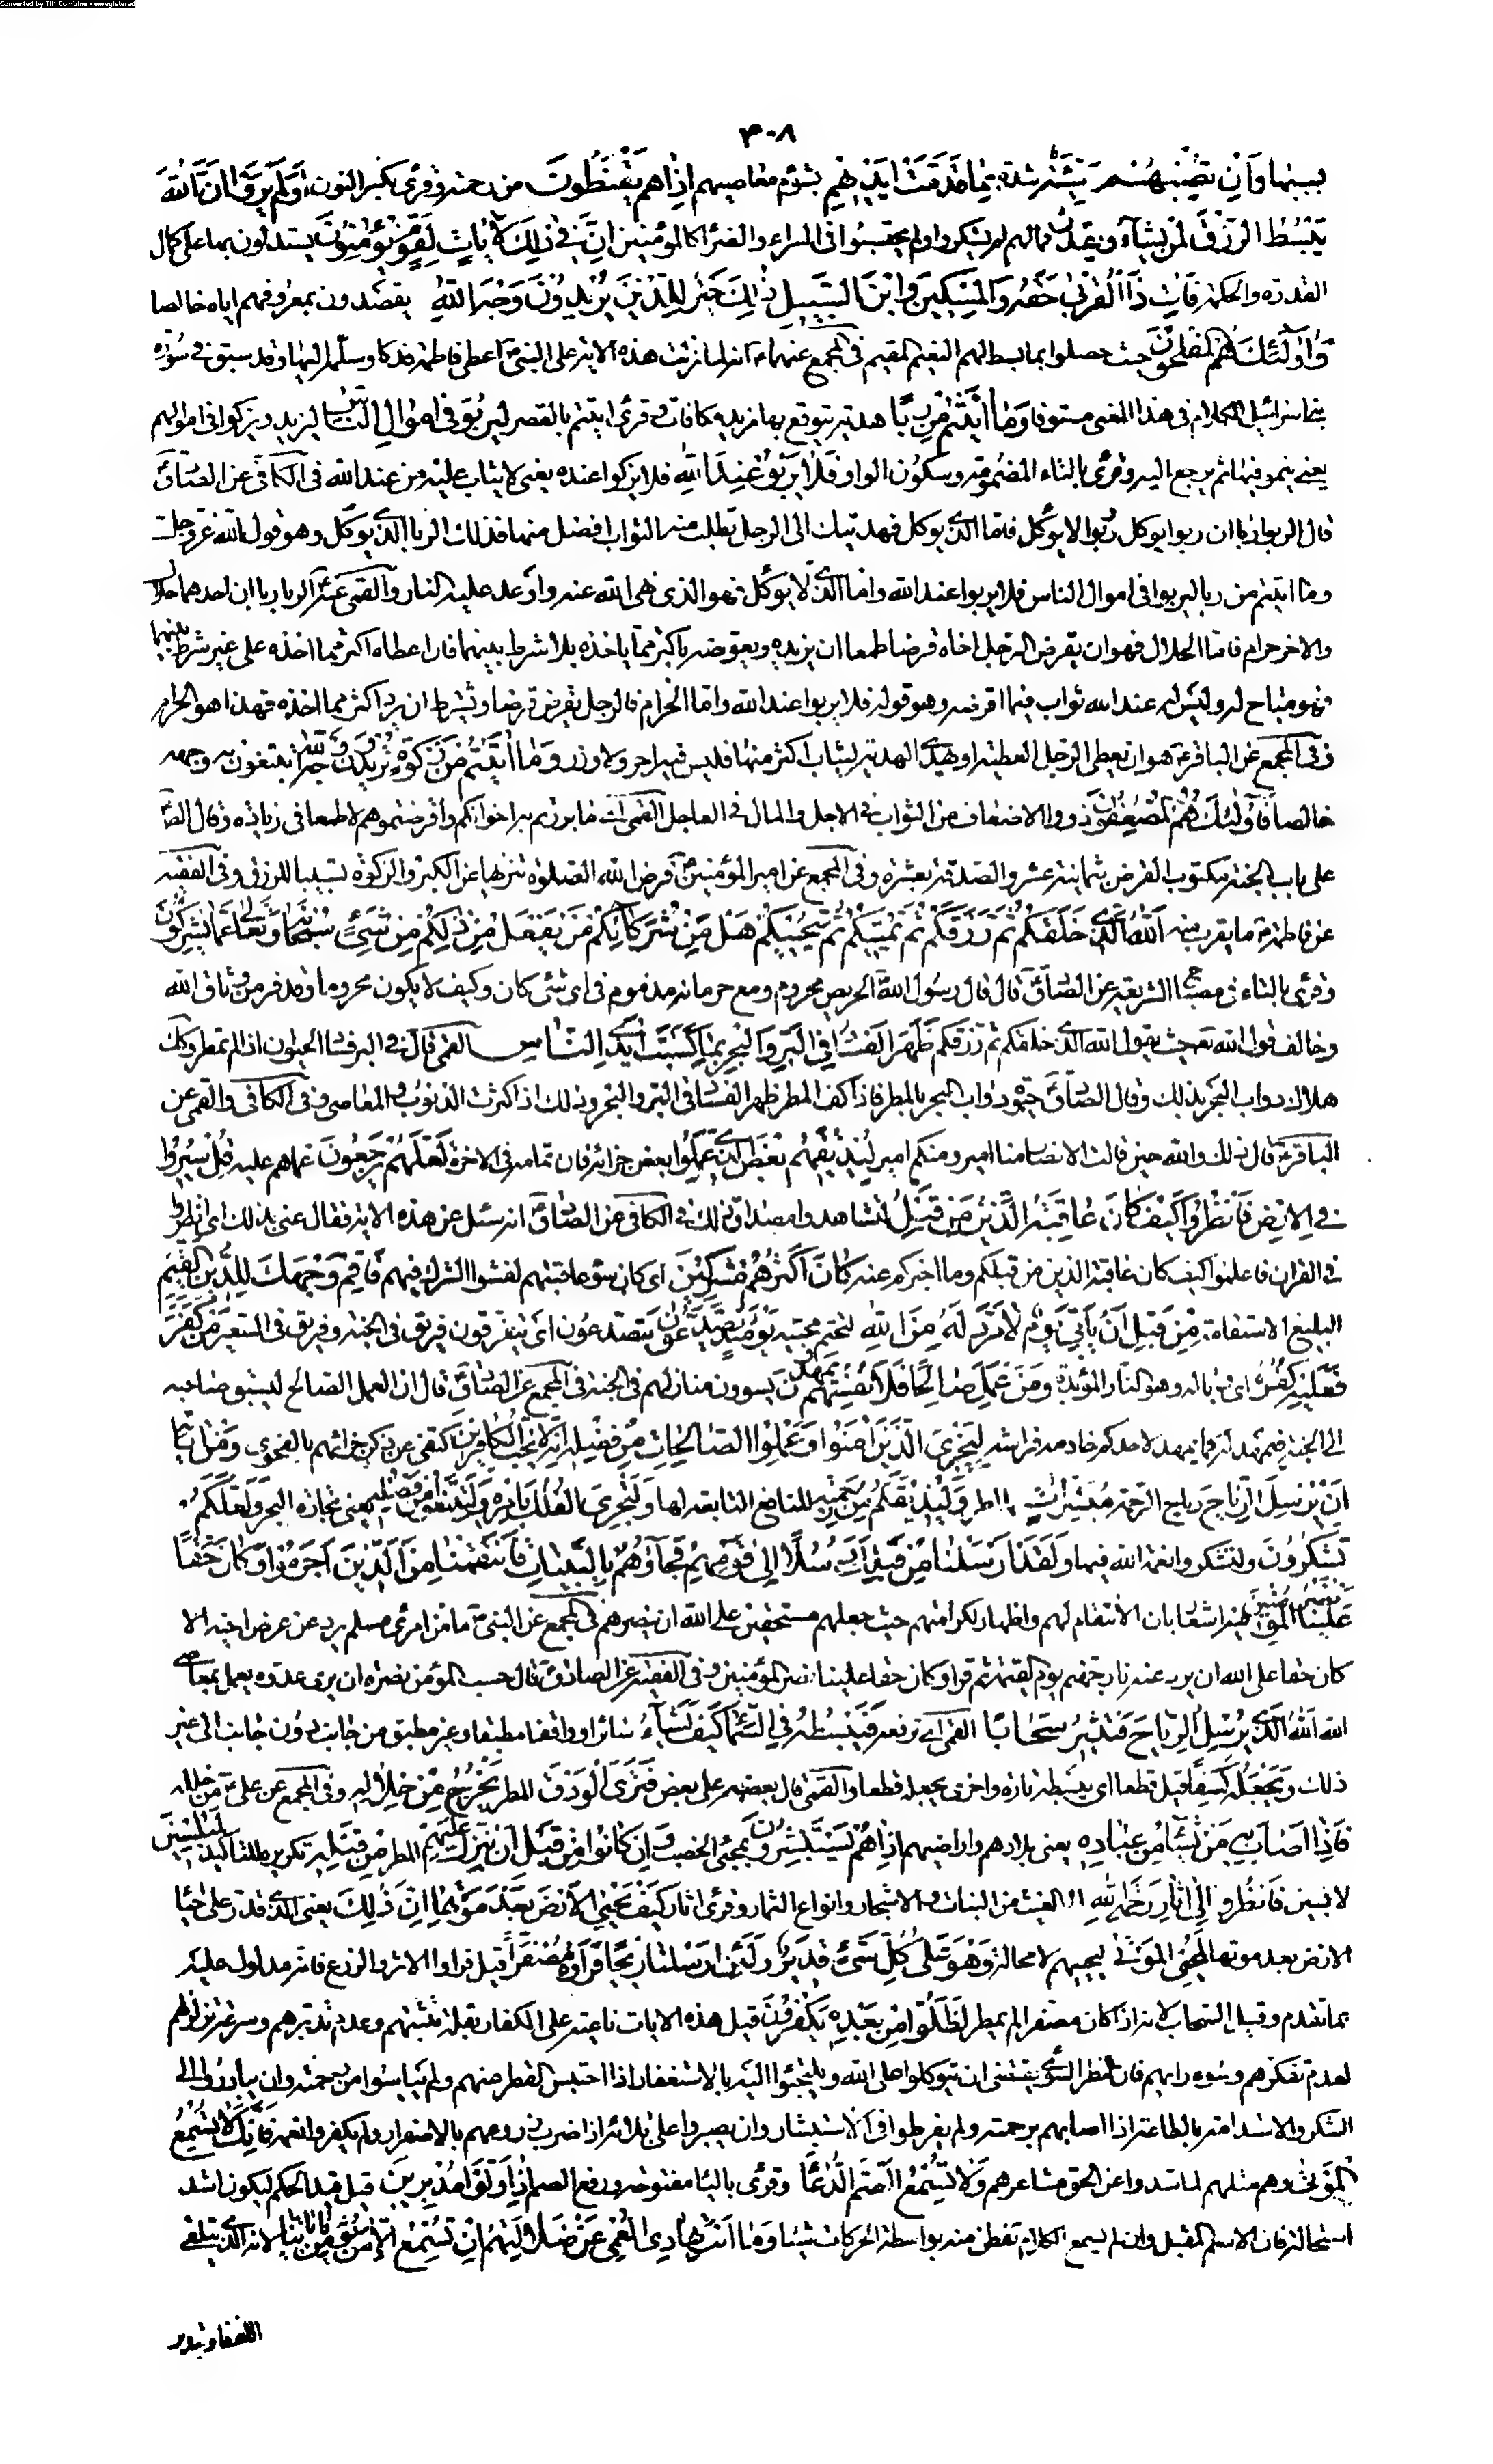 Converted by Tiff Combine - unregistered
۴۰۸
بسببها وَاِنْ تُصِبْهُمْ سَيِّئَةٌ شدة بِمَا قَدَّمَتْ اَيْدِيهِمْ بشؤم معاصيهم اِذَا هُمْ يَقْنَطُونَ من رحمته وقرئ بكسر النون اَوَلَمْ يَرَوْا اَنَّ اللّٰهَ
يَبْسُطُ الرِّزْقَ لِمَنْ يَشَآءُ وَيَقْدِرُ فمالهم لم يشكروا ولم يحتسبوا فى السراء والضراء كالمؤمنين اِنَّ فِي ذٰلِكَ لَاٰيَاتٍ لِقَوْمٍ يُؤْمِنُونَ يستدلون بها على كمال
القدرة والحكمة فَاٰتِ ذَا الْقُرْبٰى حَقَّهُ وَالْمِسْكِينَ وَابْنَ السَّبِيلِ ذٰلِكَ خَيْرٌ لِلَّذِينَ يُرِيدُونَ وَجْهَ اللّٰهِ يقصدون بمعروفهم اياه خالصا
وَاُولٰٓئِكَ هُمُ الْمُفْلِحُونَ حيث حصلوا بما بسط لهم النعيم المقيم فى المجمع عنهما ع انه لما نزلت هذه الاية على النبى ص اعطى فاطمة فدكا وسلّمه اليها وقد سبق فى سورة
بنى اسرائيل الكلام فى هذا المعنى مستوفا وَمَا اٰتَيْتُمْ مِنْ رِبًا هدية يتوقع بها مزيد مكافاة وقرئ اتيتم بالقصر لِيَرْبُوَ فِي اَمْوَالِ النَّاسِ ليزيد ويزكوا فى اموالهم
يعنى ينمو فيها ثم يرجع اليه وقرئ بالتاء المضمومة وسكون الواو فَلَا يَرْبُو عِنْدَ اللّٰهِ فلا يزكوا عنده يعنى لا يثاب عليه من عند الله فى الكافى عن الصّادق
قال الربوا ربا ان ربوا يوكل ربوا لا يوكل فامّا الذى يوكل فهديتك الى الرجل تطلب منه الثواب افضل منها فذلك الربا الذى يوكل وهو قول الله عز وجل
وما اتيتم من ربا ليربوا فى اموال الناس فلا يربوا عند الله واما الذى لا يوكل فهو الذى نهى الله عنه واوعد عليه النار والقمى عنه الربا ربا ان احدهما حلال
والاخر حرام فاما الحلال فهو ان يقرض الرجل اخاه قرضا طمعا ان يزيده ويعوضه باكثر مما ياخذه بلا شرط بينهما فان اعطاه اكثر مما اخذه على غير شرط بينهما
فهو مباح له وليس له عند الله ثواب فيما اقرضه وهو قوله فلا يربوا عند الله واما الحرام فالرجل يقرض قرضا ويشترط ان يرد اكثر مما اخذه فهذا هو الحرام
وفى المجمع عن الباقر ع هو ان يعطى الرجل العطية او يهدى الهدية ليثاب اكثر منها فليس فيه اجر ولا وزر وَمَا اٰتَيْتُمْ مِنْ زَكٰوةٍ تُرِيدُونَ وَجْهَ اللّٰهِ تبتغون به وجهه
خالصا فَاُولٰٓئِكَ هُمُ الْمُضْعِفُونَ ذووا الاضعاف من الثواب فى الاجل والمال فى العاجل القمى اى ما بررتم به اخوانكم واقرضتموهم لا طمعا فى زيادة وقال الصادق
على باب الجنة مكتوب القرض بثمانية عشر والصدقة بعشرة وفى المجمع عن امير المؤمنين فرض الله الصلوة تنزيها عن الكبر والزكوة تسبيبا للرزق وفى الفقيه
عن فاطمة ما يقرب منه اَللّٰهُ الَّذِي خَلَقَكُمْ ثُمَّ رَزَقَكُمْ ثُمَّ يُمِيتُكُمْ ثُمَّ يُحْيِيكُمْ هَلْ مِنْ شُرَكَائِكُمْ مَنْ يَفْعَلُ مِنْ ذٰلِكُمْ مِنْ شَيْءٍ سُبْحَانَهُ وَتَعَالٰى عَمَّا يُشْرِكُونَ
وقرئ بالتاء فى مصباح الشريعة عن الصّادق قال قال رسول الله الحريص محروم ومع حرمانه مذموم فى اى شئ كان وكيف لا يكون محروما وقد فر من وثاق الله
وخالف قول الله تع حيث يقول الله الذى خلقكم ثم رزقكم ظَهَرَ الْفَسَادُ فِي الْبَرِّ وَالْبَحْرِ بِمَا كَسَبَتْ اَيْدِي النَّاسِ القمى قال فى البر فساد الحيوان اذا لم تمطر وكذلك
هلاك دواب البحر بذلك وقال الصّادق حيوة دواب البحر بالمطر فاذا كف المطر ظهر الفساد فى البر والبحر وذلك اذا كثرت الذنوب والمعاصى وفى الكافى والقمى عن
الباقر ع قال ذلك والله حين قالت الانصار منا امير ومنكم امير لِيُذِيقَهُمْ بَعْضَ الَّذِي عَمِلُوا بعض جزائه فان تمامه فى الاخرة لَعَلَّهُمْ يَرْجِعُونَ عماهم عليه قُلْ سِيرُوا
فِي الْاَرْضِ فَانْظُرُوا كَيْفَ كَانَ عَاقِبَةُ الَّذِينَ مِنْ قَبْلُ لتشاهدوا مصداق ذلك فى الكافى عن الصّادق انه سئل عن هذه الاية فقال عنى بذلك اى انظروا
فى القران فاعلموا كيف كان عاقبة الذين من قبلكم وما اخبركم عنه كَانَ اَكْثَرُهُمْ مُشْرِكِينَ اى كان سوء عاقبتهم لفشو الشرك فيهم فَاَقِمْ وَجْهَكَ لِلدِّينِ الْقَيِّمِ
البليغ الاستقامة مِنْ قَبْلِ اَنْ يَأْتِيَ يَوْمٌ لَا مَرَدَّ لَهُ مِنَ اللّٰهِ لتحتم مجيئه يَوْمَئِذٍ يَصَّدَّعُونَ يتصدعون اى يتفرقون فريق فى الجنة وفريق فى السعير مَنْ كَفَرَ
فَعَلَيْهِ كُفْرُهُ اى وباله وهو النار المؤبدة وَمَنْ عَمِلَ صَالِحًا فَلِاَنْفُسِهِمْ يَمْهَدُونَ يسوون منازلهم فى الجنة فى المجمع عن الصّادق قال ان العمل الصالح ليسبق صاحبه
الى الجنة فيمهد له كما يمهد لاحدكم خادمه فراشه لِيَجْزِيَ الَّذِينَ اٰمَنُوا وَعَمِلُوا الصَّالِحَاتِ مِنْ فَضْلِهِ اِنَّهُ لَا يُحِبُّ الْكَافِرِينَ اكتفى عن ذكر جزائهم بالفحوى وَمِنْ اٰيَاتِهِ
اَنْ يُرْسِلَ الرِّيَاحَ رياح الرحمة مُبَشِّرَاتٍ بالمطر وَلِيُذِيقَكُمْ مِنْ رَحْمَتِهِ المنافع التابعة لها وَلِتَجْرِيَ الْفُلْكُ بِاَمْرِهِ وَلِتَبْتَغُوا مِنْ فَضْلِهِ يعنى تجارة البحر وَلَعَلَّكُمْ
تَشْكُرُونَ ولتشكروا نعمة الله فيها وَلَقَدْ اَرْسَلْنَا مِنْ قَبْلِكَ رُسُلًا اِلٰى قَوْمِهِمْ فَجَاؤُهُمْ بِالْبَيِّنَاتِ فَانْتَقَمْنَا مِنَ الَّذِينَ اَجْرَمُوا وَكَانَ حَقًّا
عَلَيْنَا نَصْرُ الْمُؤْمِنِينَ فيه اشعار بان الانتقام لهم واظهار لكرامتهم حيث جعلهم مستحقين على الله ان ينصرهم فى المجمع عن النبى ص ما من امرئ مسلم يرد عن عرض اخيه الا
كان حقا على الله ان يرد عنه نار جهنم يوم القيمة ثم قرا وكان حقا علينا نصر المؤمنين وفى الفقيه عن الصادق قال حسب المؤمن نصرة ان يرى عدوه يعمل بمعاصى
الله اَللّٰهُ الَّذِي يُرْسِلُ الرِّيَاحَ فَتُثِيرُ سَحَابًا القمى اى ترفعه فَيَبْسُطُهُ فِي السَّمَاءِ كَيْفَ يَشَاءُ سائرا وواقفا مطبقا وغير مطبق من جانب دون جانب الى غير
ذلك وَيَجْعَلُهُ كِسَفًا قيل قطعا اى يبسطه تارة واخرى يجعله قطعا والقمى قال بعضه على بعض فَتَرَى الْوَدْقَ المطر يَخْرُجُ مِنْ خِلَالِهِ وفى المجمع عن على من خلله
فَاِذَا اَصَابَ بِهِ مَنْ يَشَاءُ مِنْ عِبَادِهِ يعنى بلادهم واراضيهم اِذَا هُمْ يَسْتَبْشِرُونَ بمجئ الخصب وَاِنْ كَانُوا مِنْ قَبْلِ اَنْ يُنَزَّلَ عَلَيْهِمْ المطر مِنْ قَبْلِهِ تكرير للتاكيد لَمُبْلِسِينَ
لائسين فَانْظُرْ اِلٰى اٰثَارِ رَحْمَةِ اللّٰهِ اثر الغيث من النبات والاشجار وانواع الثمار وقرئ اثار كَيْفَ يُحْيِي الْاَرْضَ بَعْدَ مَوْتِهَا اِنَّ ذٰلِكَ يعنى الذى قدر على احياء
الارض بعد موتها لَمُحْيِي الْمَوْتٰى ليحييهم لا محالة وَهُوَ عَلٰى كُلِّ شَيْءٍ قَدِيرٌ وَلَئِنْ اَرْسَلْنَا رِيحًا فَرَاَوْهُ مُصْفَرًّا قيل فراوا الاثر والزرع فانه مدلول عليه
بما تقدم وقيل السحاب لانه اذا كان مصفرا لم يمطر لَظَلُّوا مِنْ بَعْدِهِ يَكْفُرُونَ قيل هذه الايات ناعية على الكفار بقلة تثبتهم وعدم تدبرهم وسرعة تزلزلهم
لعدم تفكرهم وسوء رايهم فان النظر السوى يقتضى ان يتوكلوا على الله ويلتجئوا اليه بالاستغفار اذا احتبس القطر عنهم ولم ييأسوا من رحمته وان يبادروا الى
الشكر والاستدامة بالطاعة اذا اصابهم برحمته ولم يفرطوا فى الاستبشار وان يصبروا على بلائه اذا ضرب زروعهم بالاصفرار ولم يكفروا نعمه فَاِنَّكَ لَا تُسْمِعُ
الْمَوْتٰى وهم مثلهم لما سدوا عن الحق مشاعرهم وَلَا تُسْمِعُ الصُّمَّ الدُّعَاءَ وقرئ بالياء مفتوحة ورفع الصم اِذَا وَلَّوْا مُدْبِرِينَ قيل قيد الحكم ليكون اشد
استحالة فان الاصم المقبل وان لم يسمع الكلام تفطن منه بواسطة الحركات شيئا وَمَا اَنْتَ بِهَادِي الْعُمْيِ عَنْ ضَلَالَتِهِمْ اِنْ تُسْمِعُ اِلَّا مَنْ يُؤْمِنُ بِاٰيَاتِنَا لانه الذى يتلقى
اللفظ ويتدبر